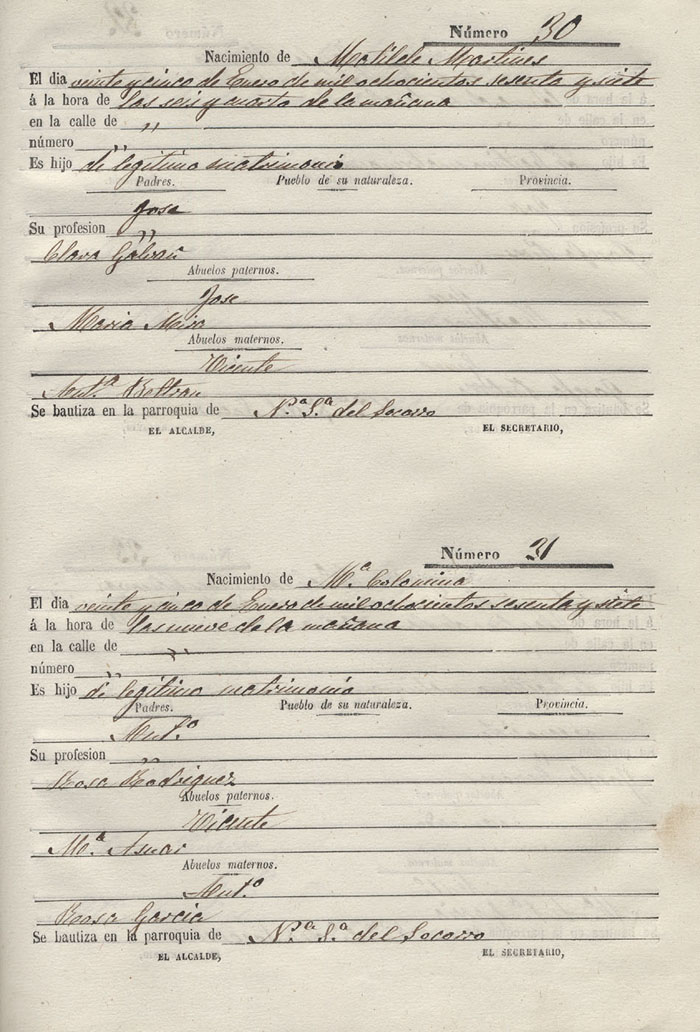 Número 30
Nacimiento de Matilde Martines
El dia veinte y cinco de Enero de mil ochocientos sesenta y siete
á la hora de las seis y cuarto de la mañana
en la calle de ,,
número ,,
Es hijo de legitimo matrimonio
Padres. Pueblo de su naturaleza. Provincia.
Jose
Su profesion ,,
Clara Galvañ
Abuelos paternos.
Jose
Maria Mira
Abuelos maternos.
Vicente
Ant.ª Beltran
Se bautiza en la parroquia de N.ª S.ª del Socorro
EL ALCALDE, EL SECRETARIO,
Número 31
Nacimiento de M.ª Colomina
El dia veinte y cinco de Enero de mil ochocientos sesenta y siete
á la hora de las nueve de la mañana
en la calle de ,,
número ,,
Es hijo de legitimo matrimonio
Padres. Pueblo de su naturaleza. Provincia.
Ant.º
Su profesion ,,
Rosa Rodriguez
Abuelos paternos.
Vicente
M.ª Asnar
Abuelos maternos.
Ant.º
Rosa Garcia
Se bautiza en la parroquia de N.ª S.ª del Socorro
EL ALCALDE, EL SECRETARIO,